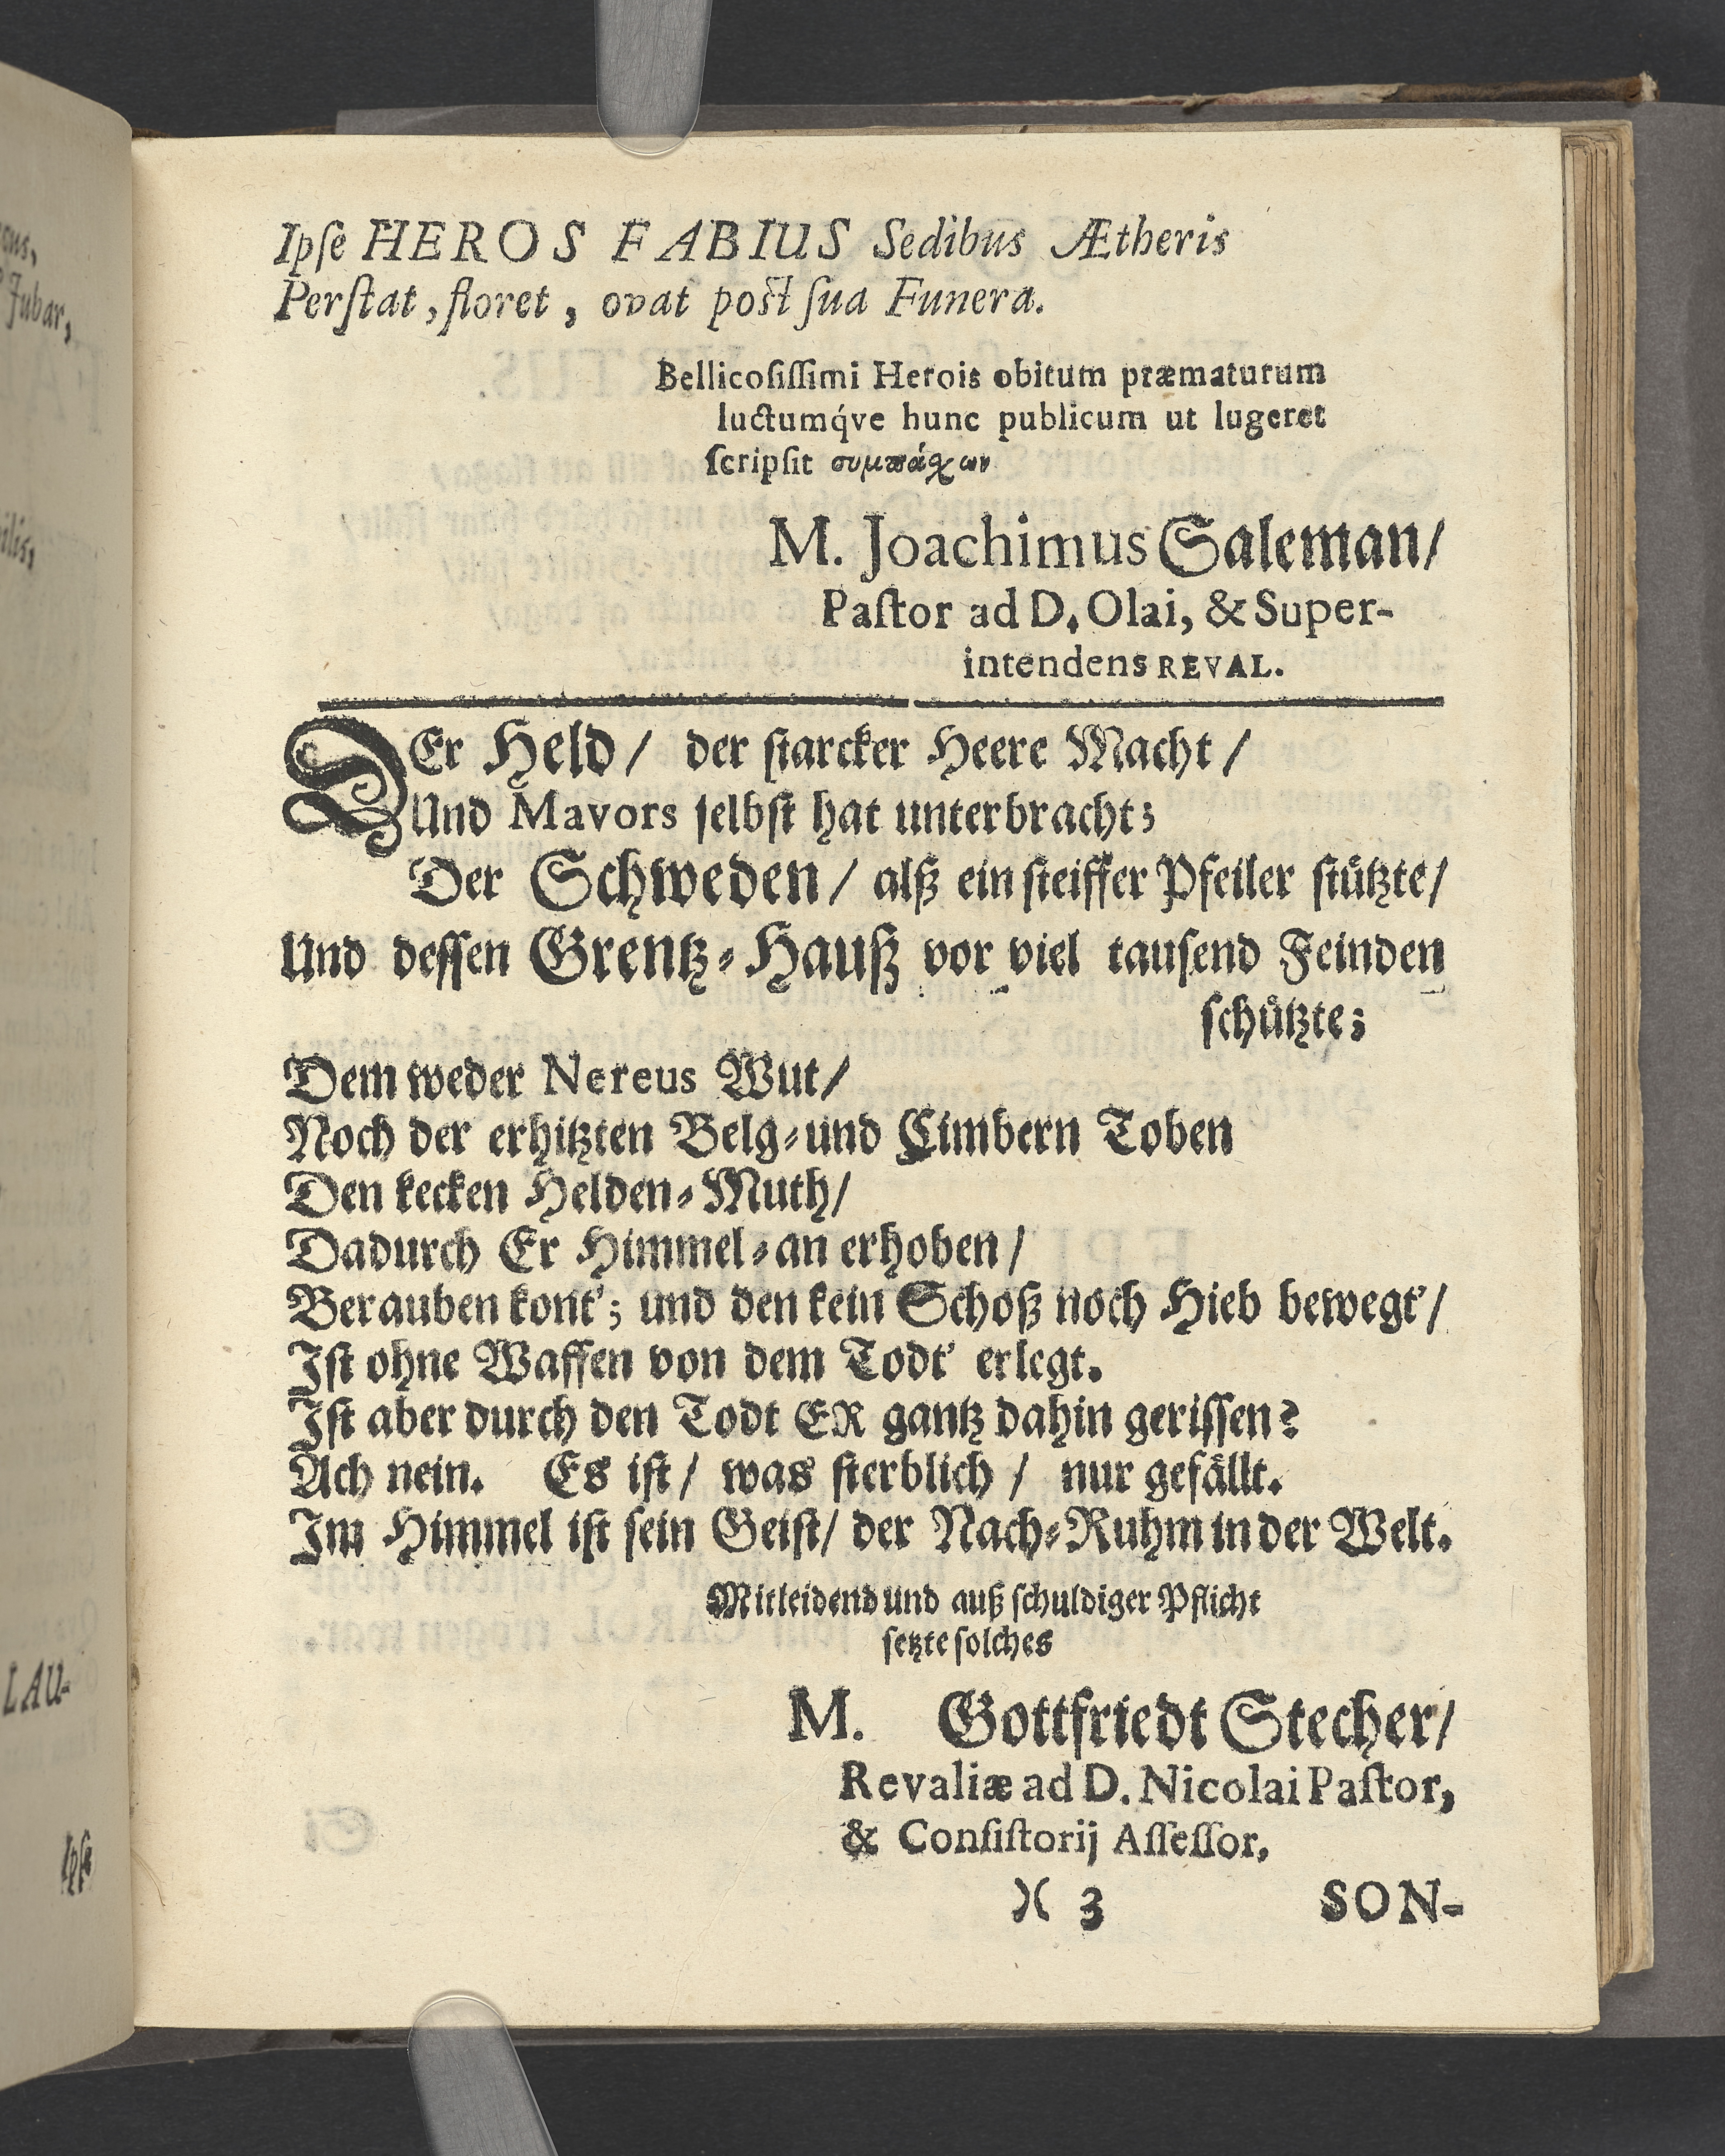 Ipſe HEROS FABIUS Sedibus Ætheris
Perſtat, floret, ovat poſt ſua Funera.
Bellicoſiſſimi Herois obitum præmaturum
luctumq́ve hunc publicum ut lugeret
ſcripſit συμπάχων
M. Joachimus Saleman/
Paſtor ad D. Olai, & Super-
intendens REVAL.
DEr Held/ der ſtarcker Heere Macht/
Und Mavors ſelbſt hat unterbracht;
Der Schweden/ alß ein ſteiffer Pfeiler ſtuͤtzte/
Und deſſen Grentz-Hauß vor viel tauſend Feinden
ſchuͤtzte;
Dem weder Nereus Wut/
Noch der erhitzten Belg-und Cimbern Toben
Den kecken Helden-Muth/
Dadurch Er Himmel-an erhoben/
Berauben kont'; und den kein Schoß noch Hieb bewegt'/
Iſt ohne Waffen von dem Todt' erlegt.
Iſt aber durch den Todt ER gantz dahin geriſſen?
Ach nein. Es iſt/ was ſterblich/ nur gefaͤllt.
Im Himmel iſt ſein Geiſt/ der Nach-Ruhm in der Welt.
Mitleidend und auß ſchuldiger Pflicht
ſetzte ſolches
M. Gottfriedt Stecher/
Revaliæ ad D. Nicolai Paſtor,
& Conſiſtorij Aſſeſſor,
)( 3 SON-